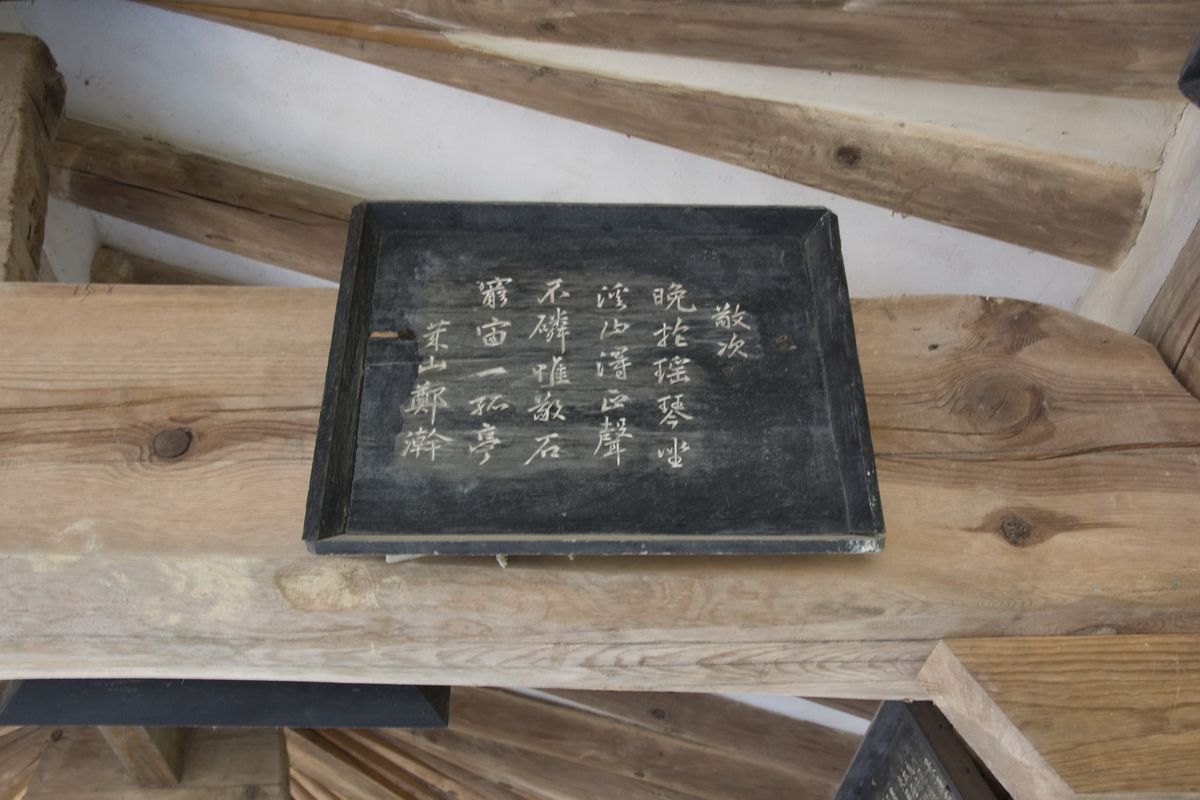 敬次
晩抱瑤琴坐
溪得正聲
不磷惟敬石
窮宙一孤亭
萊山鄭澣